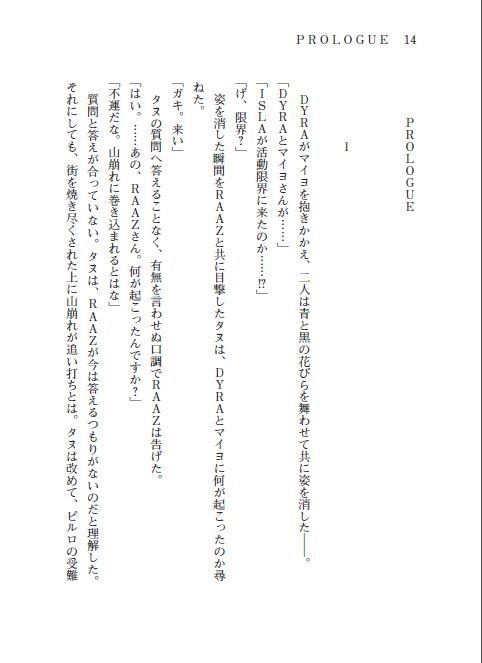 PROLOGUE 14
PROLOGUE
I
DYRAがマイヨを抱きかかえ、二人は青と黒の花びらを舞わせて共に姿を消した――。
「DYRAとマイヨさんが……」
「ISLAが活動限界に来たのか……!?」
「げ、限界？」
姿を消した瞬間をRAAZと共に目撃したタヌは、DYRAとマイヨに何が起こったのか尋
ねた。
「ガキ。来い」
タヌの質問へ答えることなく、有無を言わせぬ口調でRAAZは告げた。
「はい。……あの、RAAZさん。何が起こったんですか？」
「不運だな。山崩れに巻き込まれるとはな」
質問と答えが合っていない。タヌは、RAAZが今は答えるつもりがないのだと理解した。
それにしても、街を焼き尽くされた上に山崩れが追い打ちとは。タヌは改めて、ピルロの受難